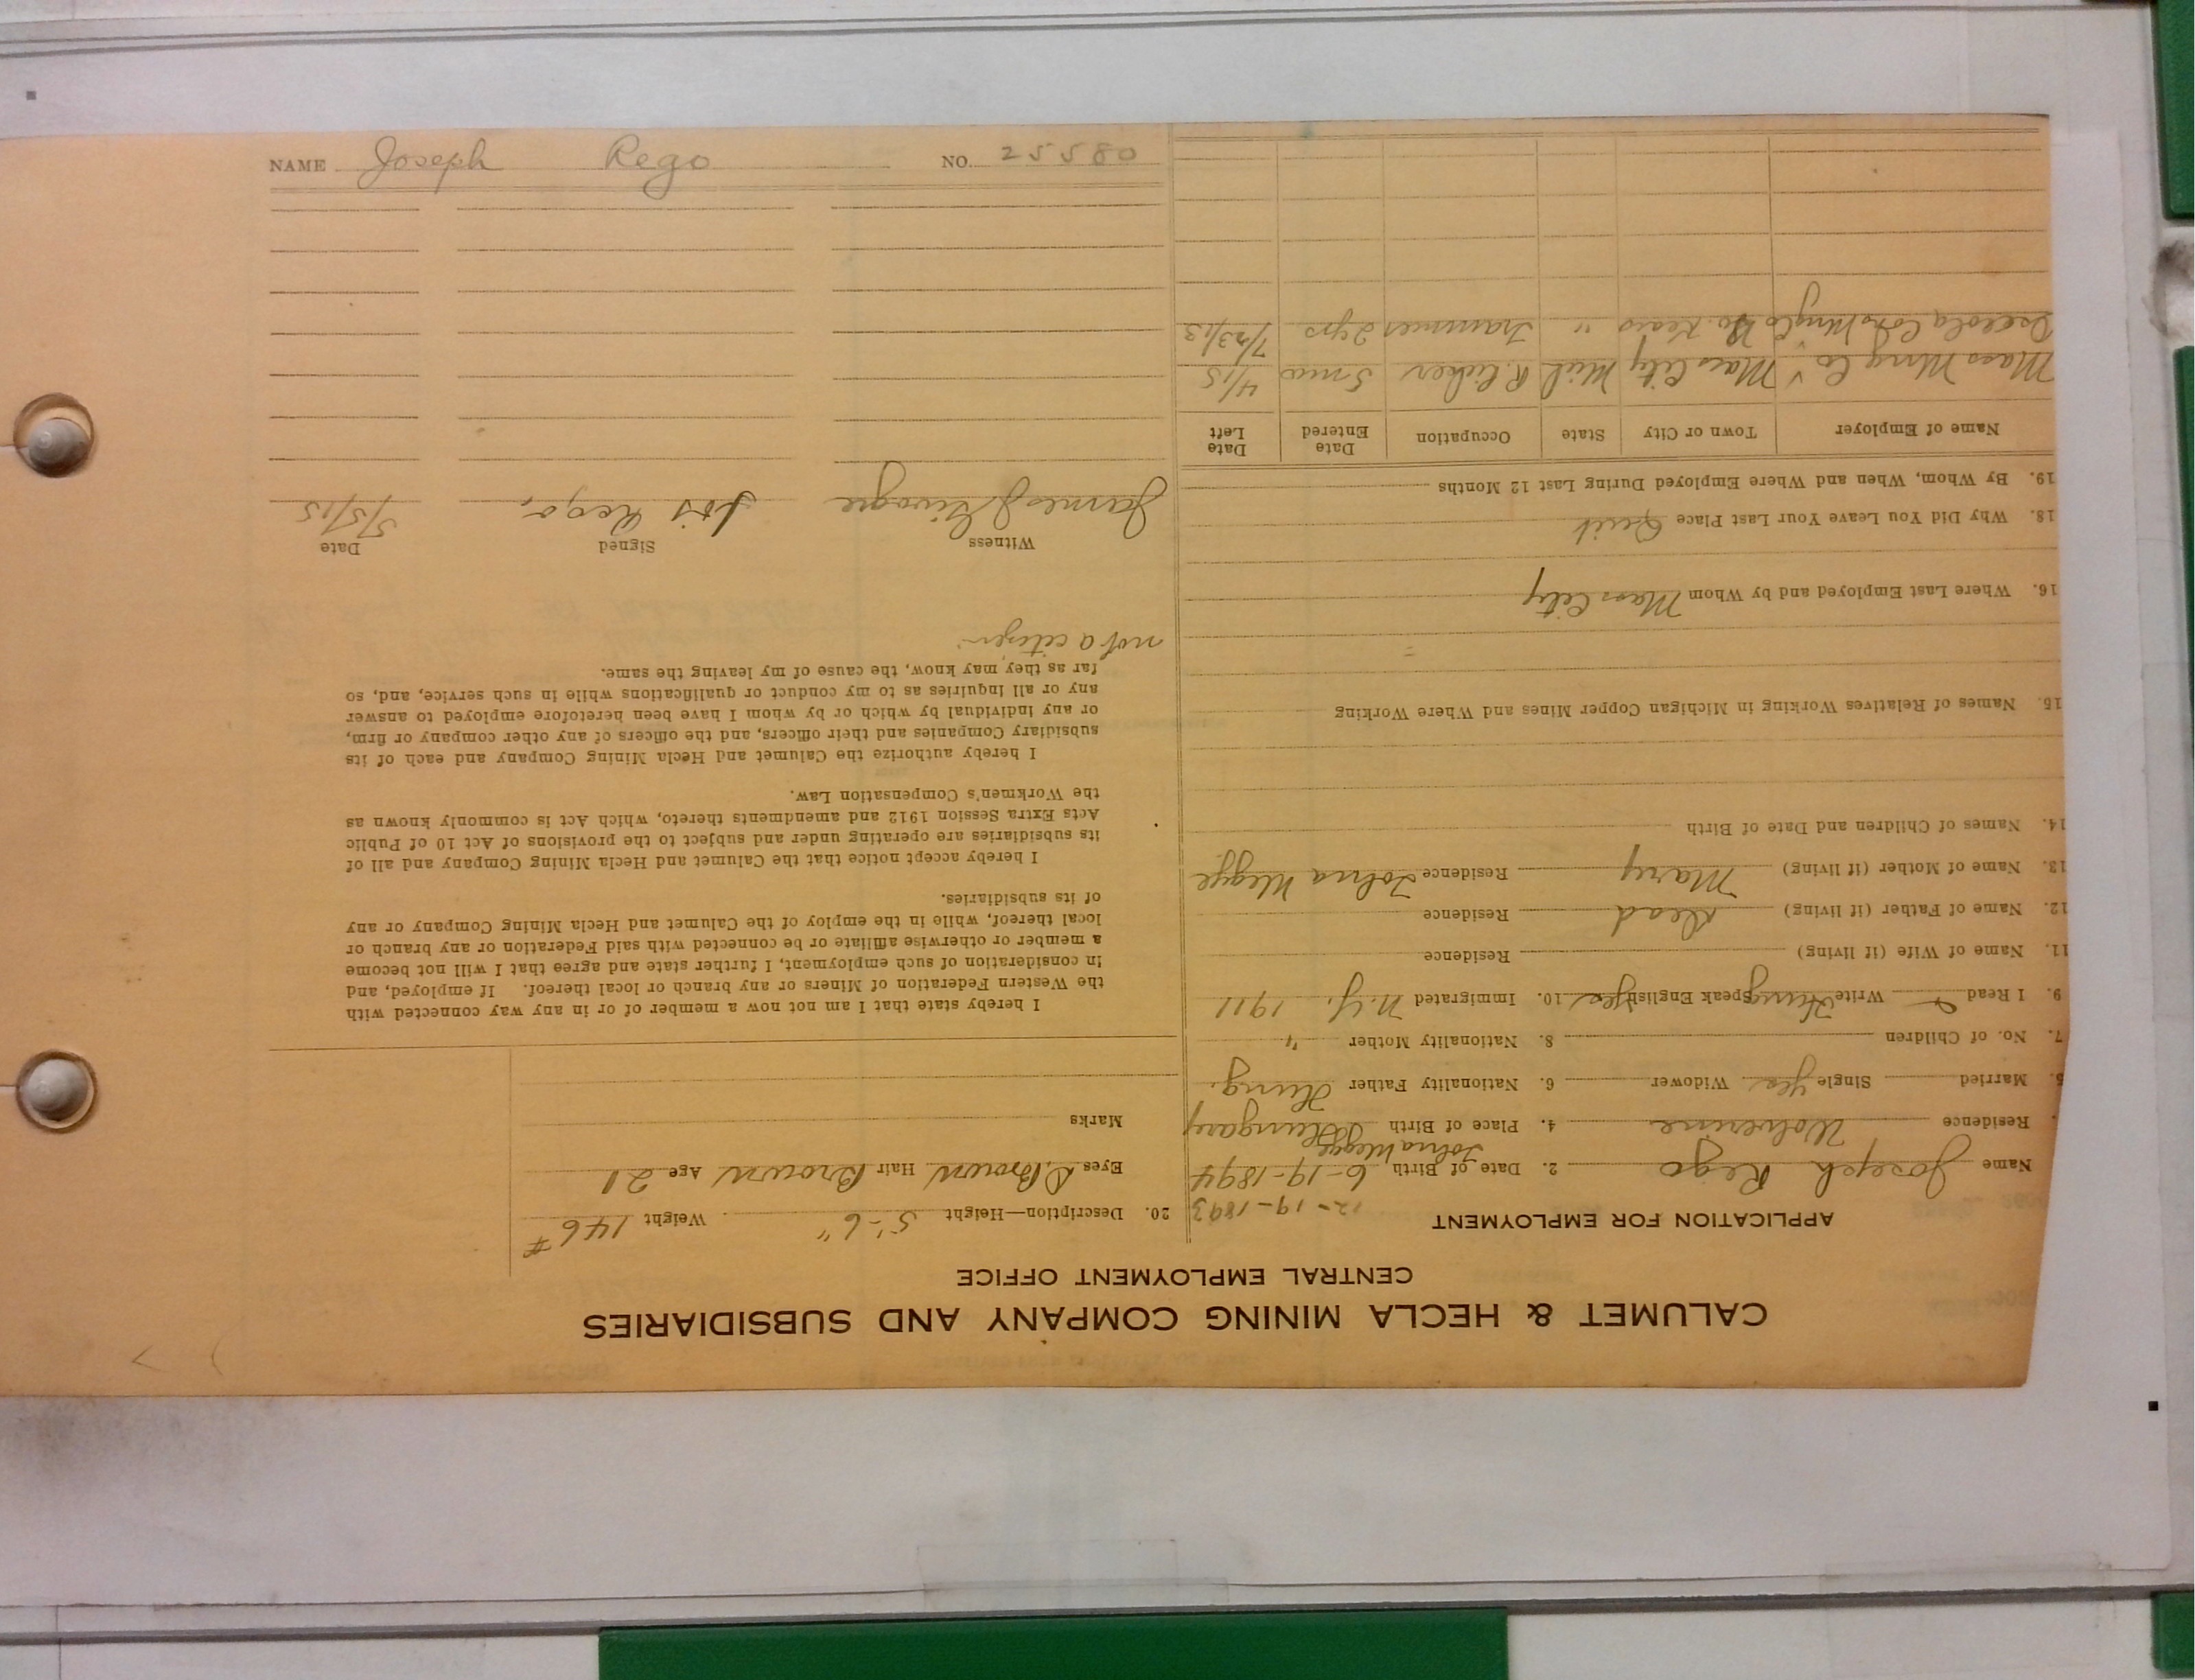 CALUMET & HECLA MINING COMPANY AND SUBSIDIARIES
CENTRAL EMPLOYMENT OFFICE
APPLICATION FOR EMPLOYMENT
12-19-1893
Name Joseph Rego 2. Date of Birth 6-19-1894
Residence Wolverine 4. Place of Birth Hungary
5. Married Single Yes Widower 6. Nationality Father Hung.
7. No. of Children 8. Nationality Mother "
9. I Read Write Hung Speak English Yes 10. Immigrated N.Y. 1911
11. Name of Wife (if living) Residence
12. Name of Father (if living) Dead Residence
13. Name of Mother (if living) Mary Residence Tolna Megye
14. Names of Children and Date of Birth
15. Names of Relatives Working in Michigan Copper Mines and Where Working
16. Where Last Employed and by Whom Mass City
18. Why Did You Leave Your Last Place Quit
19. By Whom, When and Where Employed During Last 12 Months
Name of Employer Town or City State Occupation Date Entered Date Left
Mass Mng Co ✓ Mass City Mich 5 mos 4/15
Osceola Cons Mng Co So. Kears " Trammer 2 yrs 7/23/13
20. Description—Height 5'-6" Weight 146 #
Eyes D. Brown Hair Brown Age 21
Marks
I hereby state that I am not now a member of or in any way connected with
the Western Federation of Miners or any branch or local thereof. If employed, and
in consideration of such employment, I further state and agree that I will not become
a member or otherwise affiliate or be connected with said Federation or any branch or
local thereof, while in the employ of the Calumet and Hecla Mining Company or any
of its subsidiaries.
I hereby accept notice that the Calumet and Hecla Mining Company and all of
its subsidiaries are operating under and subject to the provisions of Act 10 of Public
Acts Extra Session 1912 and amendments thereto, which Act is commonly known as
the Workmen's Compensation Law.
I hereby authorize the Calumet and Hecla Mining Company and each of its
subsidiary Companies and their officers, and the officers of any other company or firm,
or any individual by which or by whom I have been heretofore employed to answer
any or all inquiries as to my conduct or qualifications while in such service, and, so
far as they may know, the cause of my leaving the same.
not a citizen
Witness Signed Date
James J Rego 5/5/15
NAME Joseph Rego NO. 25580